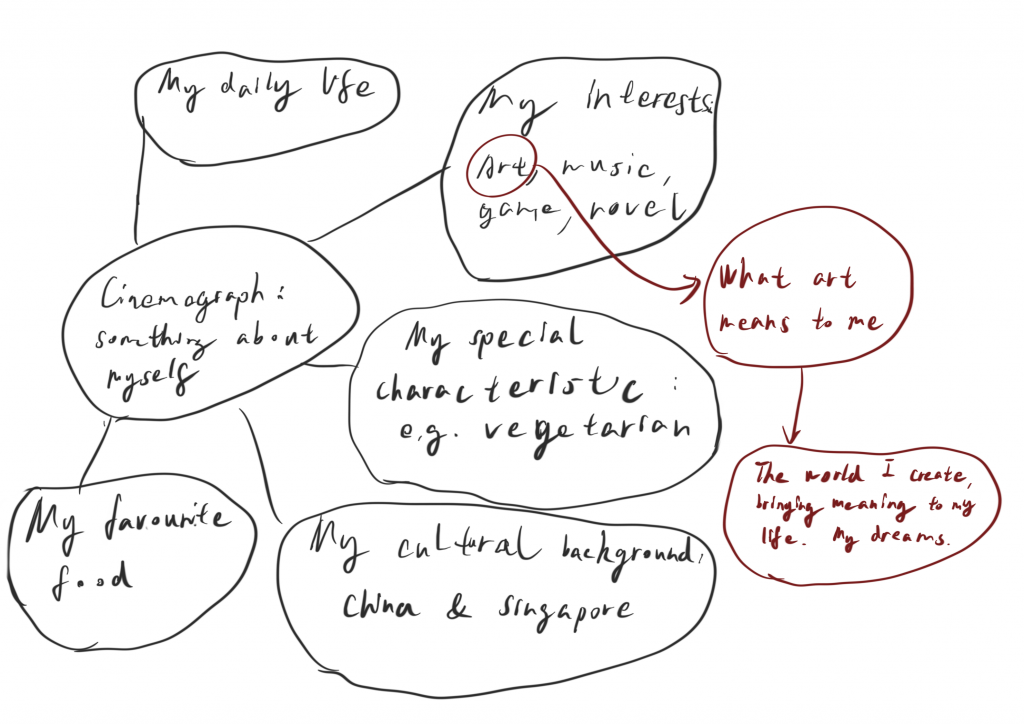 My daily life
My interests:
Art, music,
game, novel
Cinemograph:
something about
myself
My special
characteristic:
e.g. vegetarian
What art
means to me
The world I create,
bringing meaning to my
life. My dreams.
My favourite
food
My cultural background:
China & Singapore